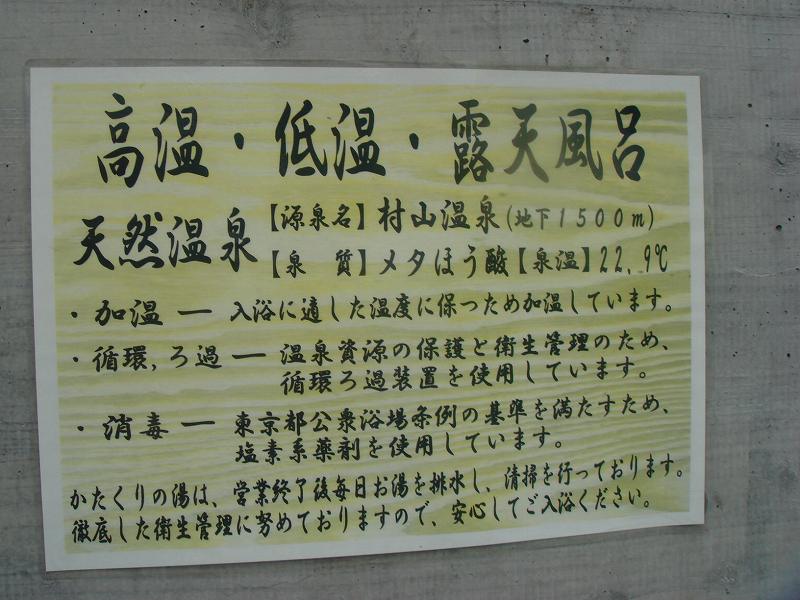 高温・低温・露天風呂
天然温泉
【源泉名】村山温泉(地下1500m)
【泉 質】メタほう酸【泉温】22.9℃
・加温 ー 入浴に適した温度に保つため加温しています。
・循環,ろ過 ー 温泉資源の保護と衛生管理のため、
循環ろ過装置を使用しています。
・消毒 ー 東京都公衆浴場条例の基準を満たすため、
塩素系薬剤を使用しています。
かたくりの湯は、営業終了後毎日お湯を排水し、清掃を行っております。
徹底した衛生管理に努めておりますので、安心してご入浴ください。